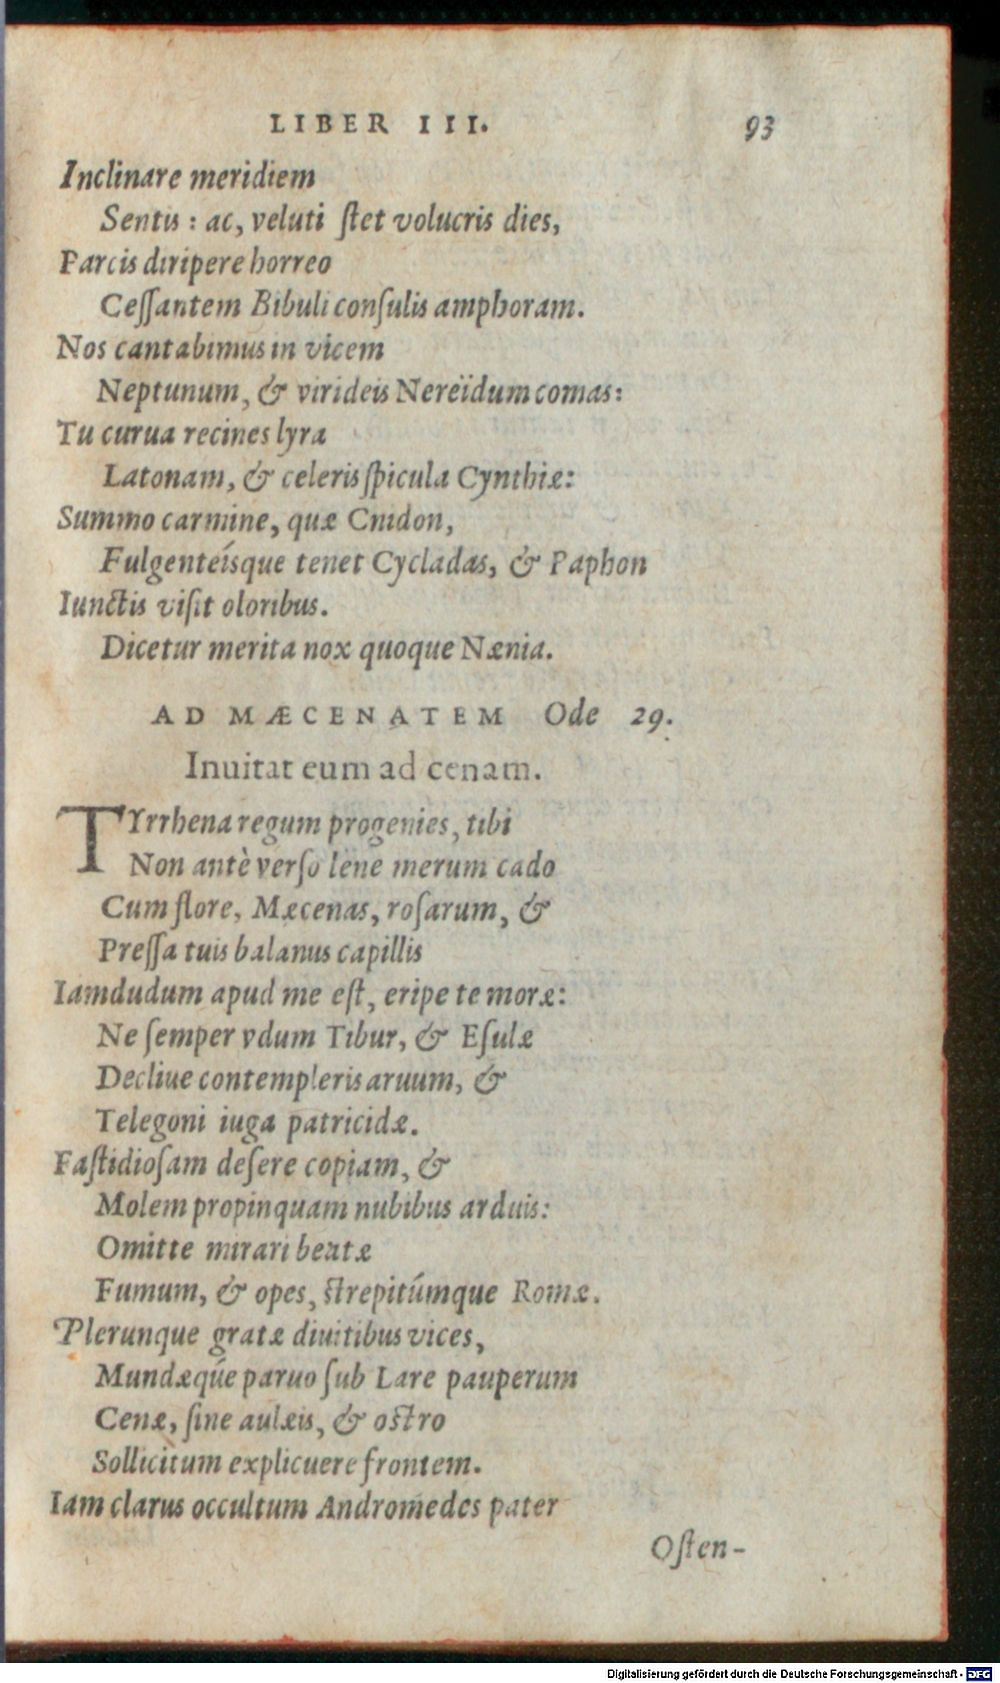 LIBER III. 93
Inclinare meridiem
Sentis : ac, veluti ſtet volucris dies,
Parcis diripere horreo
Ceſſantem Bibuli conſulis amphoram.
Nos cantabimus in vicem
Neptunum, & virideis Nereïdum comas:
Tu curua recines lyra
Latonam, & celeris ſpicula Cynthiæ:
Summo carmine, quæ Cnidon,
Fulgenteísque tenet Cycladas, & Paphon
Iunctis viſit oloribus.
Dicetur merita nox quoque Nænia.
AD MÆCENATEM Ode 29.
Inuitat eum ad cenam.
TYrrhena regum progenies, tibi
Non antè verſo lene merum cado
Cum flore, Mæcenas, roſarum, &
Preſſa tuis balanus capillis
Iamdudum apud me eſt, eripe te moræ:
Ne ſemper vdum Tibur, & Eſulæ
Decliue contempleris aruum, &
Telegoni iuga patricidæ.
Faſtidioſam deſere copiam, &
Molem propinquam nubibus arduis:
Omitte mirari beatæ
Fumum, & opes, ſtrepitúmque Romæ.
Plerunque gratæ diuitibus vices,
Mundæqúe paruo ſub Lare pauperum
Cenæ, ſine aulæis, & oſtro
Sollicitum explicuere frontem.
Iam clarus occultum Andromedes pater
Oſten-
Digitalisierung gefördert durch die Deutsche Forschungsgemeinschaft - DFG